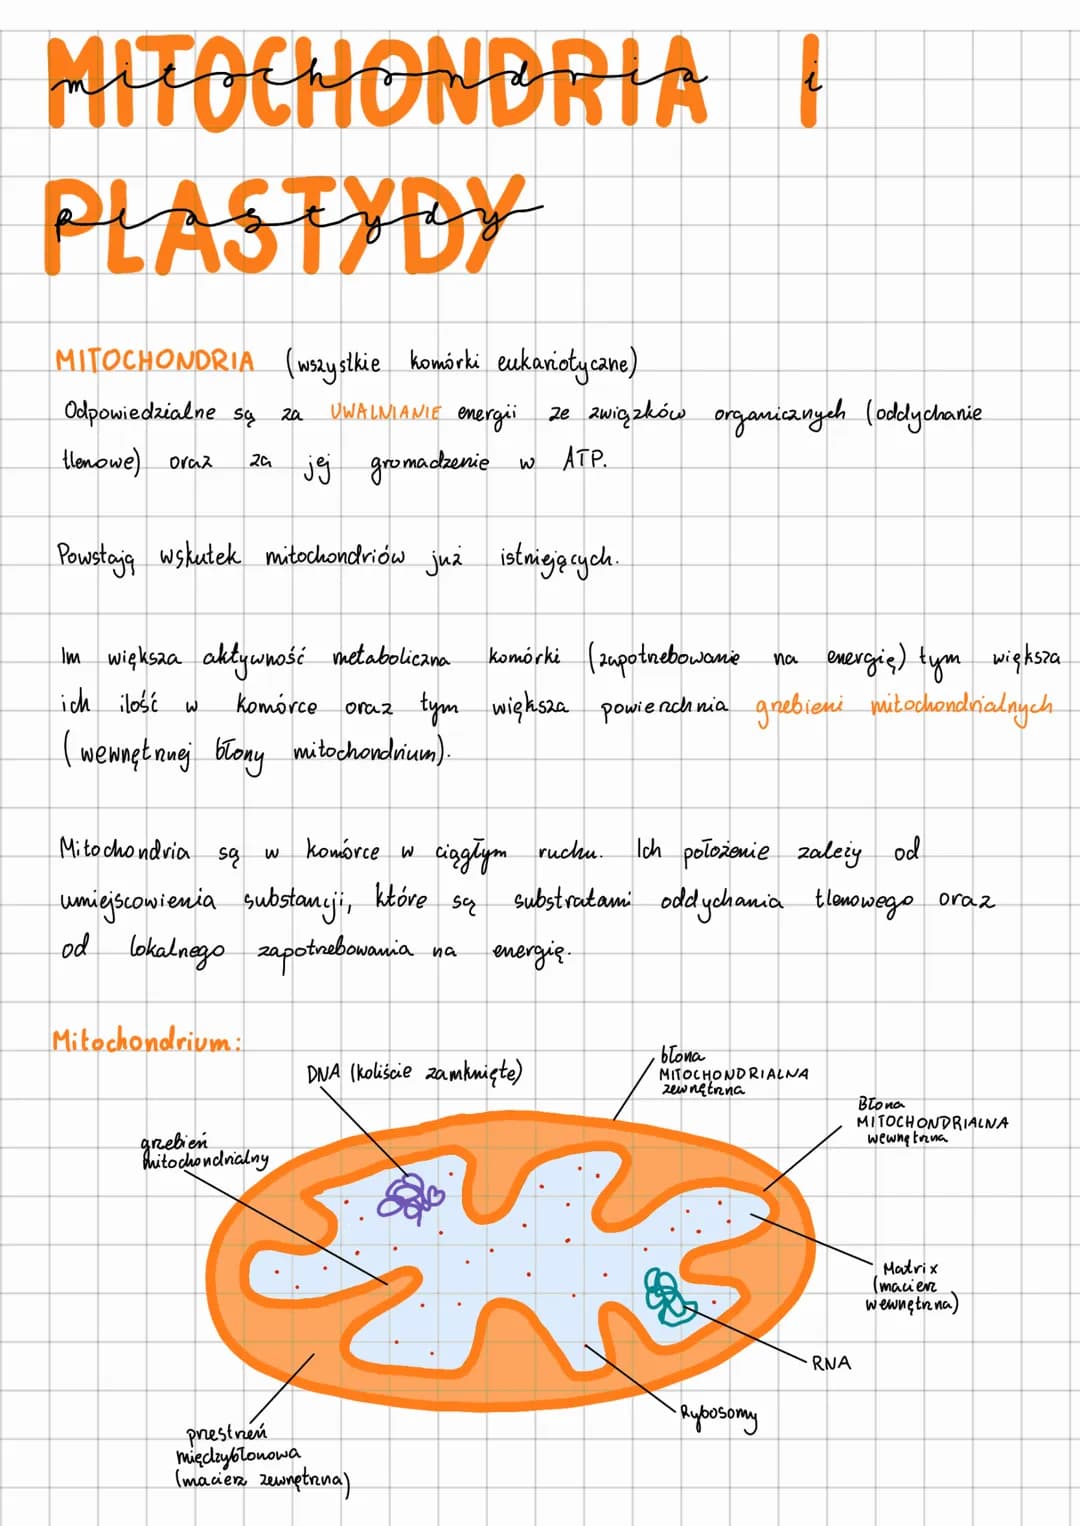 MITOCHONDRIA I
mitochondria i
PLASTYDY
plastydy
MITOCHONDRIA (wszystkie komórki eukariotyczne)
Odpowiedzialne są za UWALNIANIE energii ze związków organicznych (oddychanie
tlenowe) oraz za jej gromadzenie w ATP.
Powstają wskutek mitochondriów już istniejących.
Im większa aktywność metaboliczna komórki (zapotrzebowanie na energię) tym większa
ich ilość w komórce oraz tym większa powierzchnia grzebieni mitochondrialnych
(wewnętrznej błony mitochondrium).
Mitochondria są w komórce w ciągłym ruchu. Ich położenie zależy od
umiejscowienia substancji, które są substratami oddychania tlenowego oraz
od lokalnego zapotrzebowania na energię.
Mitochondrium:
DNA (koliście zamknięte)
błona
MITOCHONDRIALNA
zewnętrzna
Błona
MITOCHONDRIALNA
wewnętrzna
grzebień
mitochondrialny
Matrix
(macierz
wewnętrzna)
RNA
Rybosomy
przestrzeń
międzybłonowa
(macierz zewnętrzna)